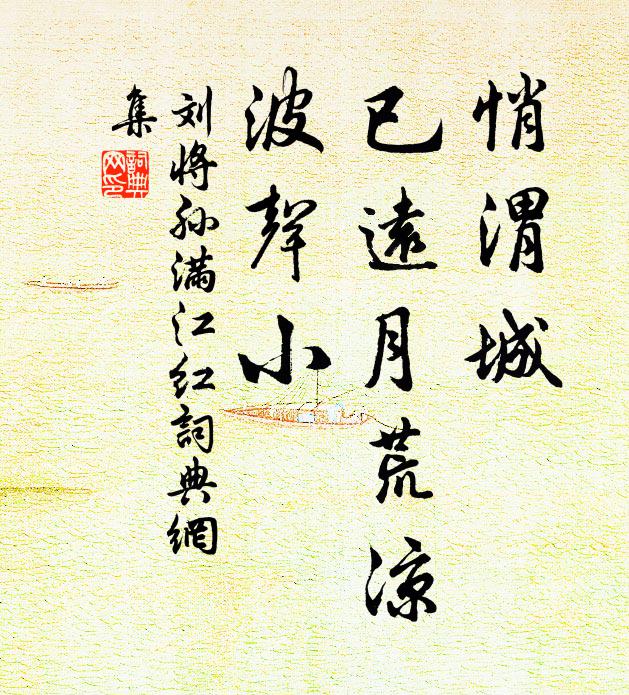 悄渭城
已遠月荒凉
波聲小
刘将孙满江红詞典網
集
詞典
网印